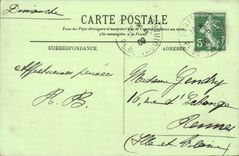 Dimanche
CARTE POSTALE
Tous les Pays étrangers n'acceptent pas la Correspondance au recto.
(Se renseigner à la Poste)
CORRESPONDANCE
ADRESSE
Affectueuses pensées
A. B.
Madame Gendry
16, rue d'Échange
Rennes
(Ille et Vilaine)
09
5